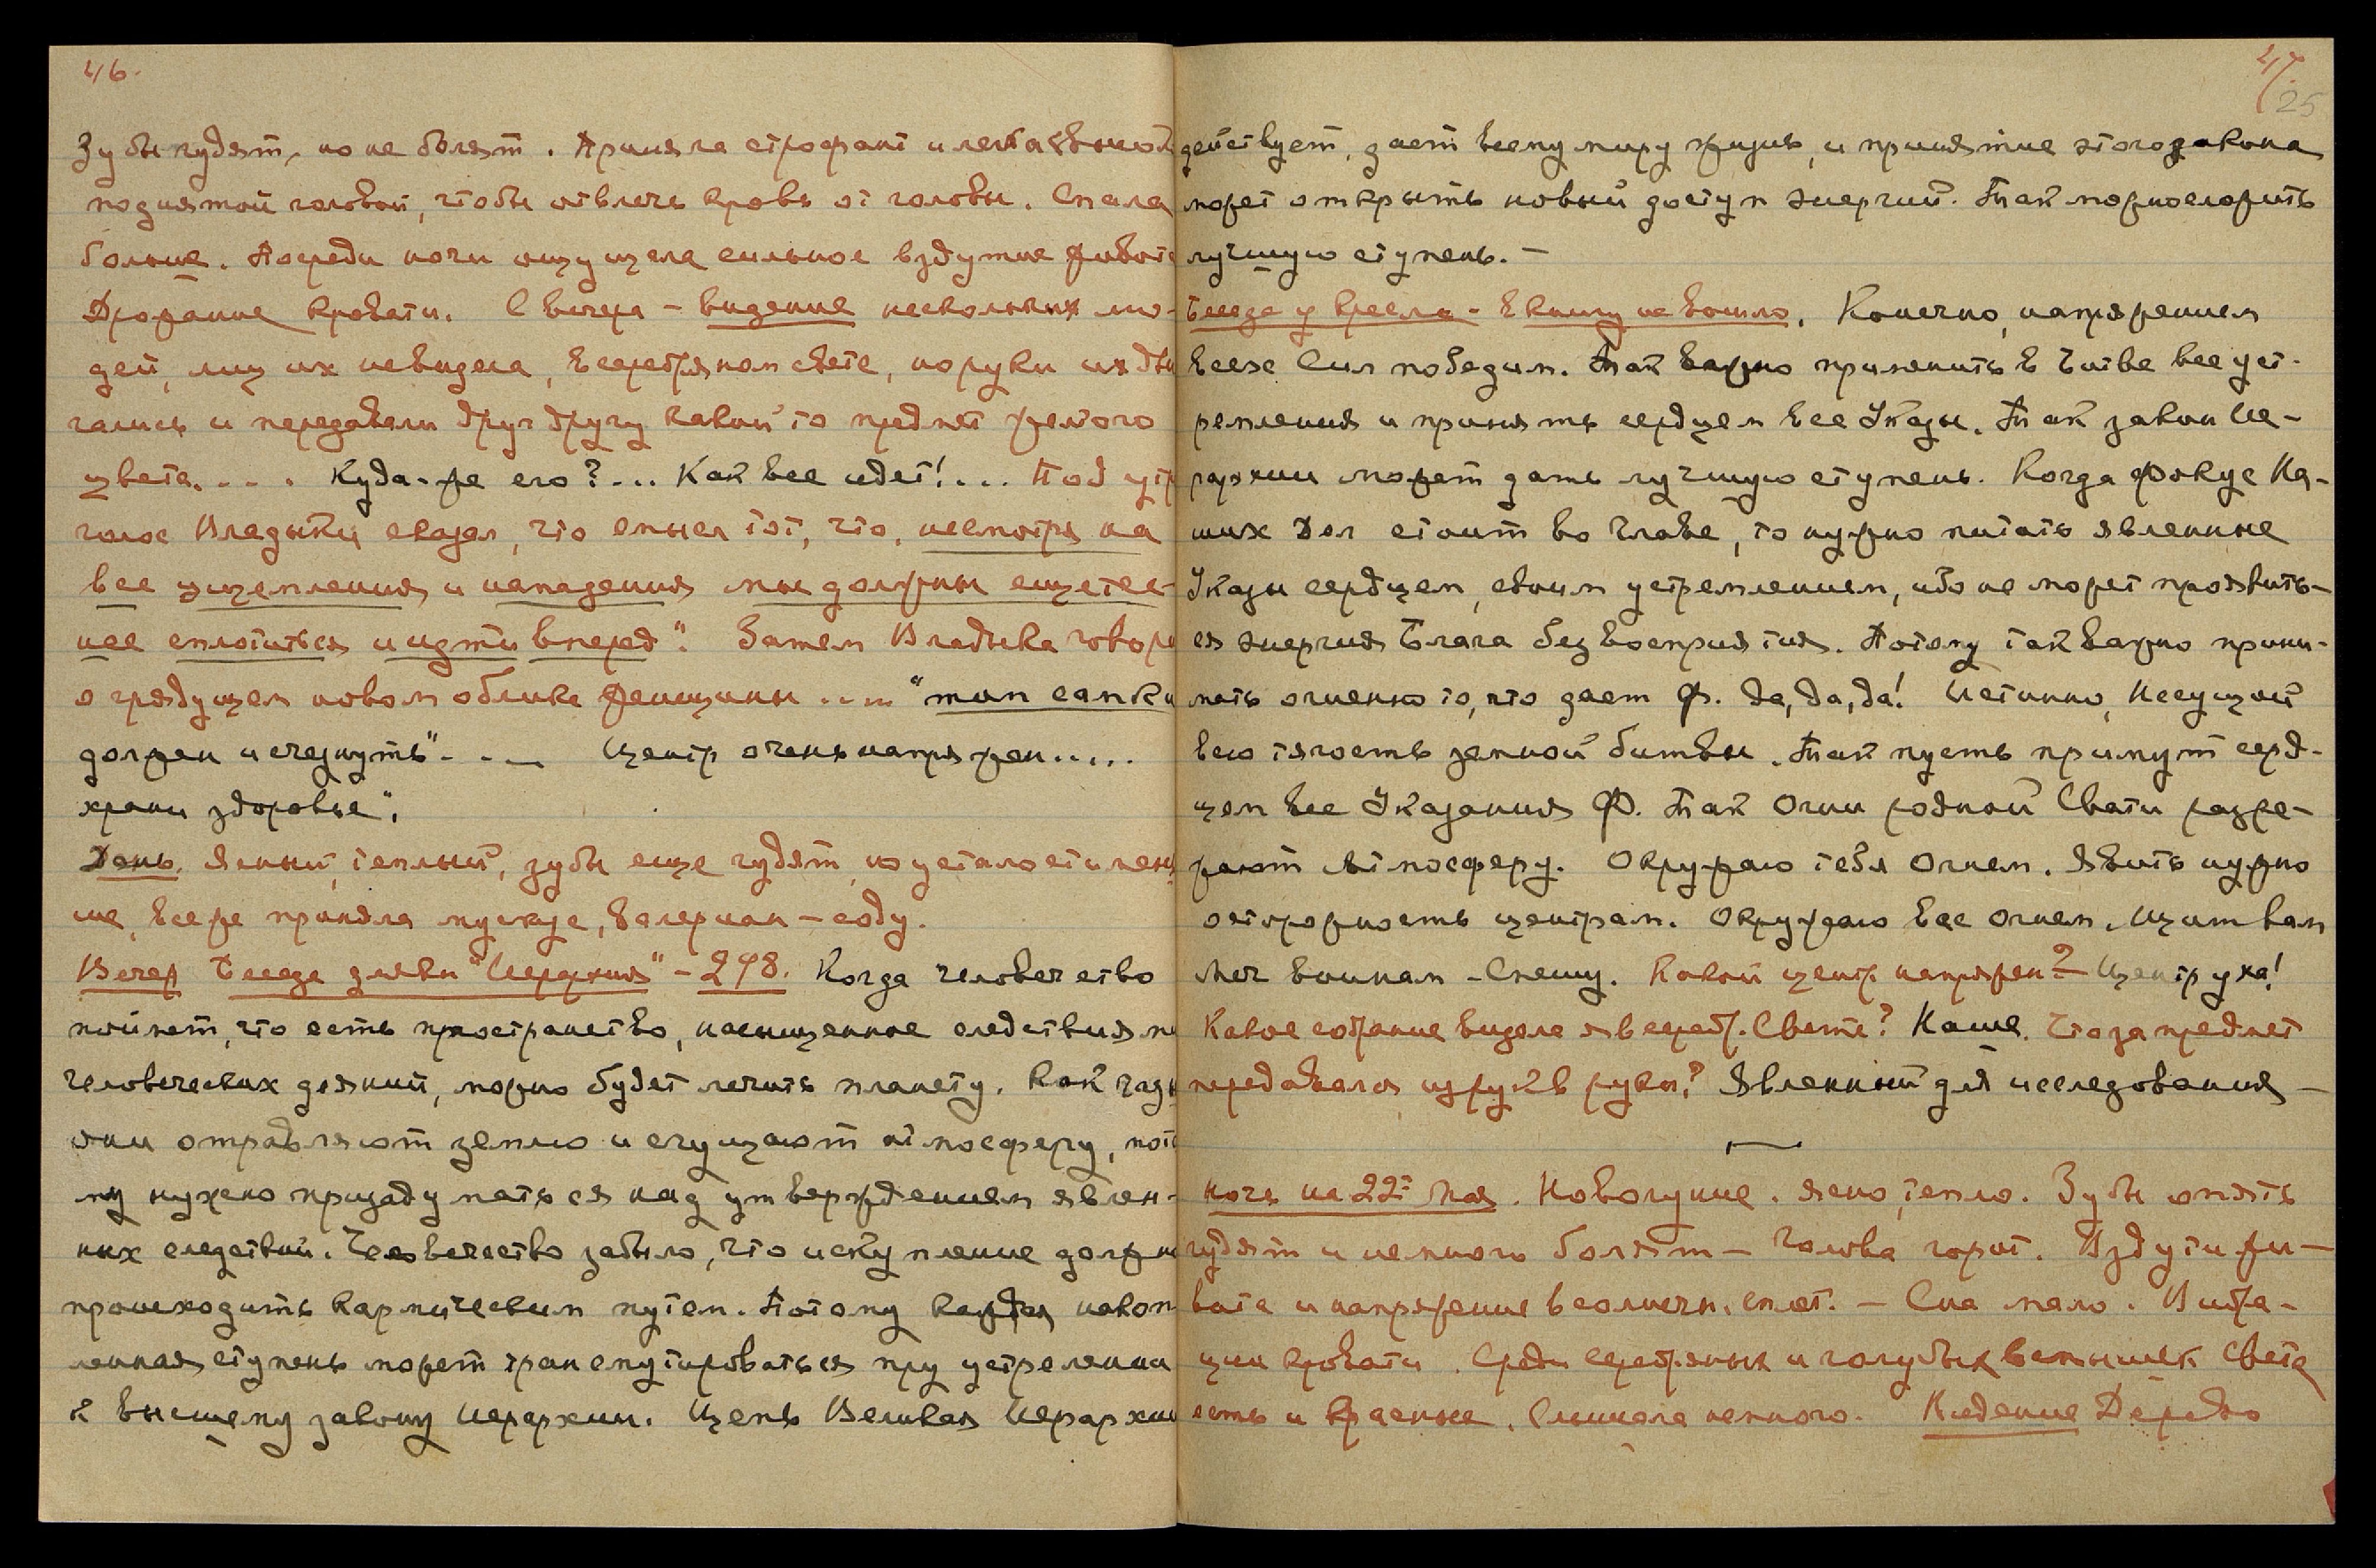 46.
Зубы нудят, но не болят. Приняла строфант и легла с высоко
поднятой головой, чтобы отвлечь кровь от головы. Спала
больше. Посреди ночи ощущала сильное вздутие живота
Дрожание кровати. С вечера - видение нескольких лю-
дей, лиц их не видела, в серебряном свете, но руки их дви
гались и передавали друг другу какой то предмет желтого
цвета. . . . Куда-же его? ... Как все идет! .... Под утр
голос Владыки сказал, что смысл тот, что, несмотря на
все ущемления и нападения мы должны еще тес-
нее сплотиться и идти вперед". Затем Владыка говори
о грядущем новом облике женщины .... "тип самки
должен исчезнуть" - . . — Центр очень напряжен.....
храни здоровье".
День. Ясный, теплый, зубы еще нудят, но усталости мень
ше, все же приняла мускус, валериан - соду.
Вечер Беседа для кн "Иерархия" - 278. Когда человечество
поймет, что есть пространство, насыщенное следствиями
человеческих деяний, можно будет лечить планету. Как газы
они отравляют землю и сгущают атмосферу, пото
му нужно призадуматься над утверждением явлен-
ных следствий. Человечество забыло, что искупление должно
происходить кармическим путем. Потому каждая накоп
ленная ступень может трансмутироваться при устремлении
к высшему закону Иерархии. Цепь Великая Иерархии
47.
25
действует, дает всему миру жизнь, и принятие этого закона
может открыть новый доступ энергий. Так можно сложить
лучшую ступень. -
Беседа у кресла - в книгу не вошло. Конечно, напряжением
всех Сил победим. Так важно применить в Битве все уст-
ремления и принять сердцем все Указы. Так закон Ие-
рархии может дать лучшую ступень. Когда Фокус На-
ших Дел стоит во Главе, то нужно питать явленные
Указы сердцем, своим устремлением, ибо не может проявить-
ся энергия Блага без восприятия. Потому так важно прини-
мать огненно то, что дает Ф. Да, да, да! Истинно, Несущий
всю тягость земной битвы. Так пусть примут серд-
цем все Указания Ф. Так Огни родной Свати разре-
жают атмосферу. Окружаю тебя Огнем. Явить нужно
осторожность центрам. Окружаю вас огнем. Щит вам
Меч воинам - Спешу. Какой центр напряжен? - Центр уха!
Какое собрание видела я в сереб. Свете? Наше. Что за предмет
передавался из рук в руки? Явленный для исследования -
Ночь на 22-ое Мая. Новолуние. ясно, тепло. Зубы опять
нудят и немного болят - Голова горит. Вздутие жи-
вота и напряжение в солнечн. сплет. - Сна мало. Вибра-
ции кровати. Среди серебряных и голубых вспышек Света
есть и красные. Слышала немного. Видение Дерево